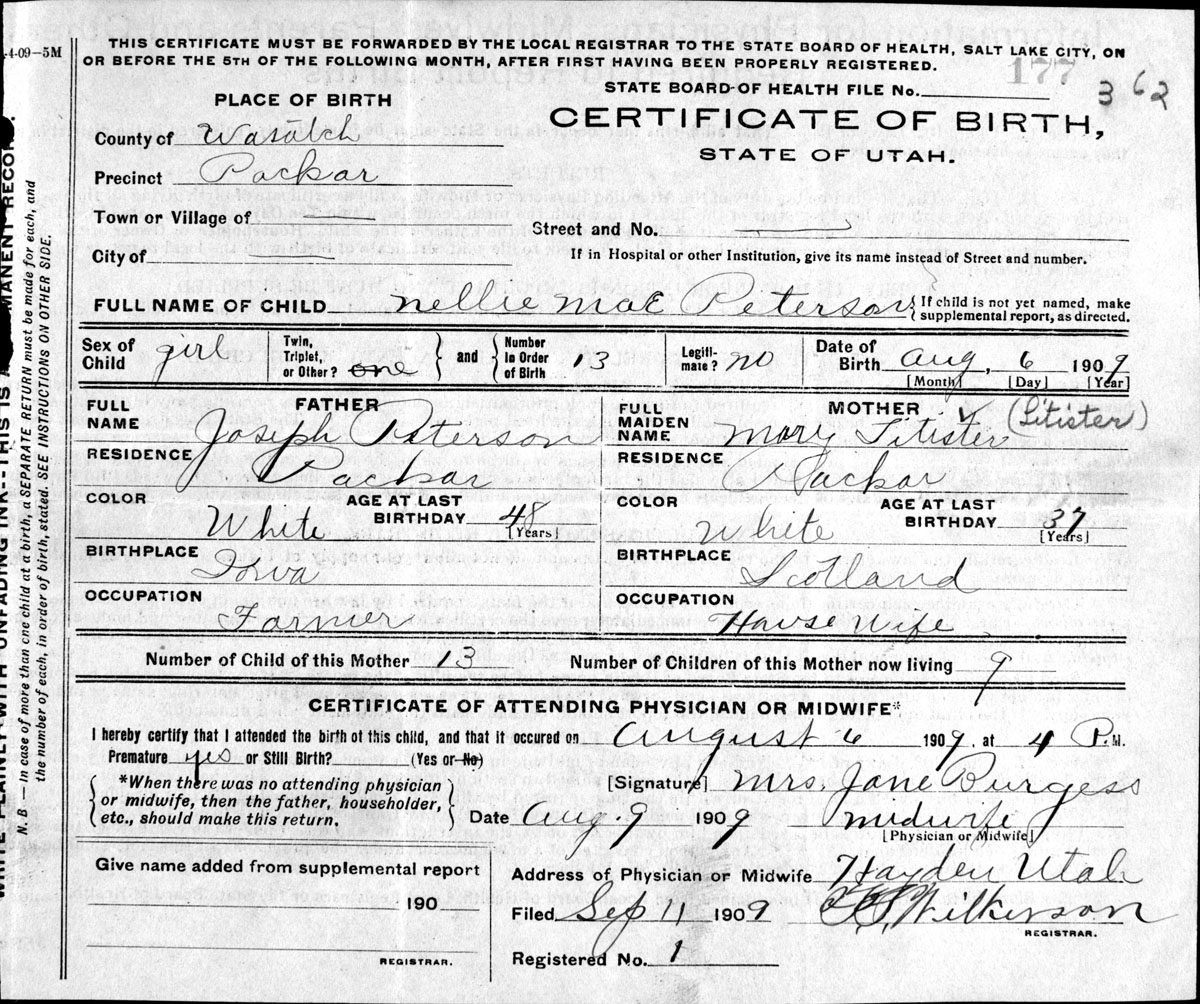 .4-09-5M
THIS CERTIFICATE MUST BE FORWARDED BY THE LOCAL REGISTRAR TO THE STATE BOARD OF HEALTH, SALT LAKE CITY, ON
OR BEFORE THE 5TH OF THE FOLLOWING MONTH, AFTER FIRST HAVING BEEN PROPERLY REGISTERED.
177
STATE BOARD OF HEALTH FILE No. 362
PLACE OF BIRTH
CERTIFICATE OF BIRTH,
STATE OF UTAH.
County of Wasatch
Precinct Packar
Town or Village of
Street and No.
City of
If in Hospital or other Institution, give its name instead of Street and number.
FULL NAME OF CHILD Nellie Mae Peterson { If child is not yet named, make supplemental report, as directed.
Sex of Child girl Twin, Triplet, or Other? one } and { Number in Order of Birth 13 Legiti- mate? no Date of Birth Aug, 6 1909
[Month] [Day] [Year]
FATHER
FULL NAME Joseph Peterson
RESIDENCE Packar
COLOR White AGE AT LAST BIRTHDAY 48
[Years]
BIRTHPLACE Iowa
OCCUPATION Farmer
MOTHER (Litister)
FULL MAIDEN NAME Mary Litister
RESIDENCE Packar
COLOR White AGE AT LAST BIRTHDAY 37
[Years]
BIRTHPLACE Scotland
OCCUPATION House Wife
Number of Child of this Mother 13 Number of Children of this Mother now living 9
CERTIFICATE OF ATTENDING PHYSICIAN OR MIDWIFE*
I hereby certify that I attended the birth of this child, and that it occured on August 6 1909, at 4 P.M.
Premature yes or Still Birth? (Yes or No)
*When there was no attending physician
or midwife, then the father, householder,
etc., should make this return.
[Signature] Mrs. Jane Burgess
Date Aug. 9 1909 midwife
[Physician or Midwife]
Give name added from supplemental report
190
REGISTRAR.
Address of Physician or Midwife Hayden Utah
Filed Sep 11, 1909 Wilkerson
REGISTRAR.
Registered No. 1
WITH UNFADING INK--THIS IS A PERMANENT RECORD.
N. B.—In case of more than one child at a birth, a SEPARATE RETURN must be made for each, and
the number of each, in order of birth, stated. SEE INSTRUCTIONS ON OTHER SIDE.